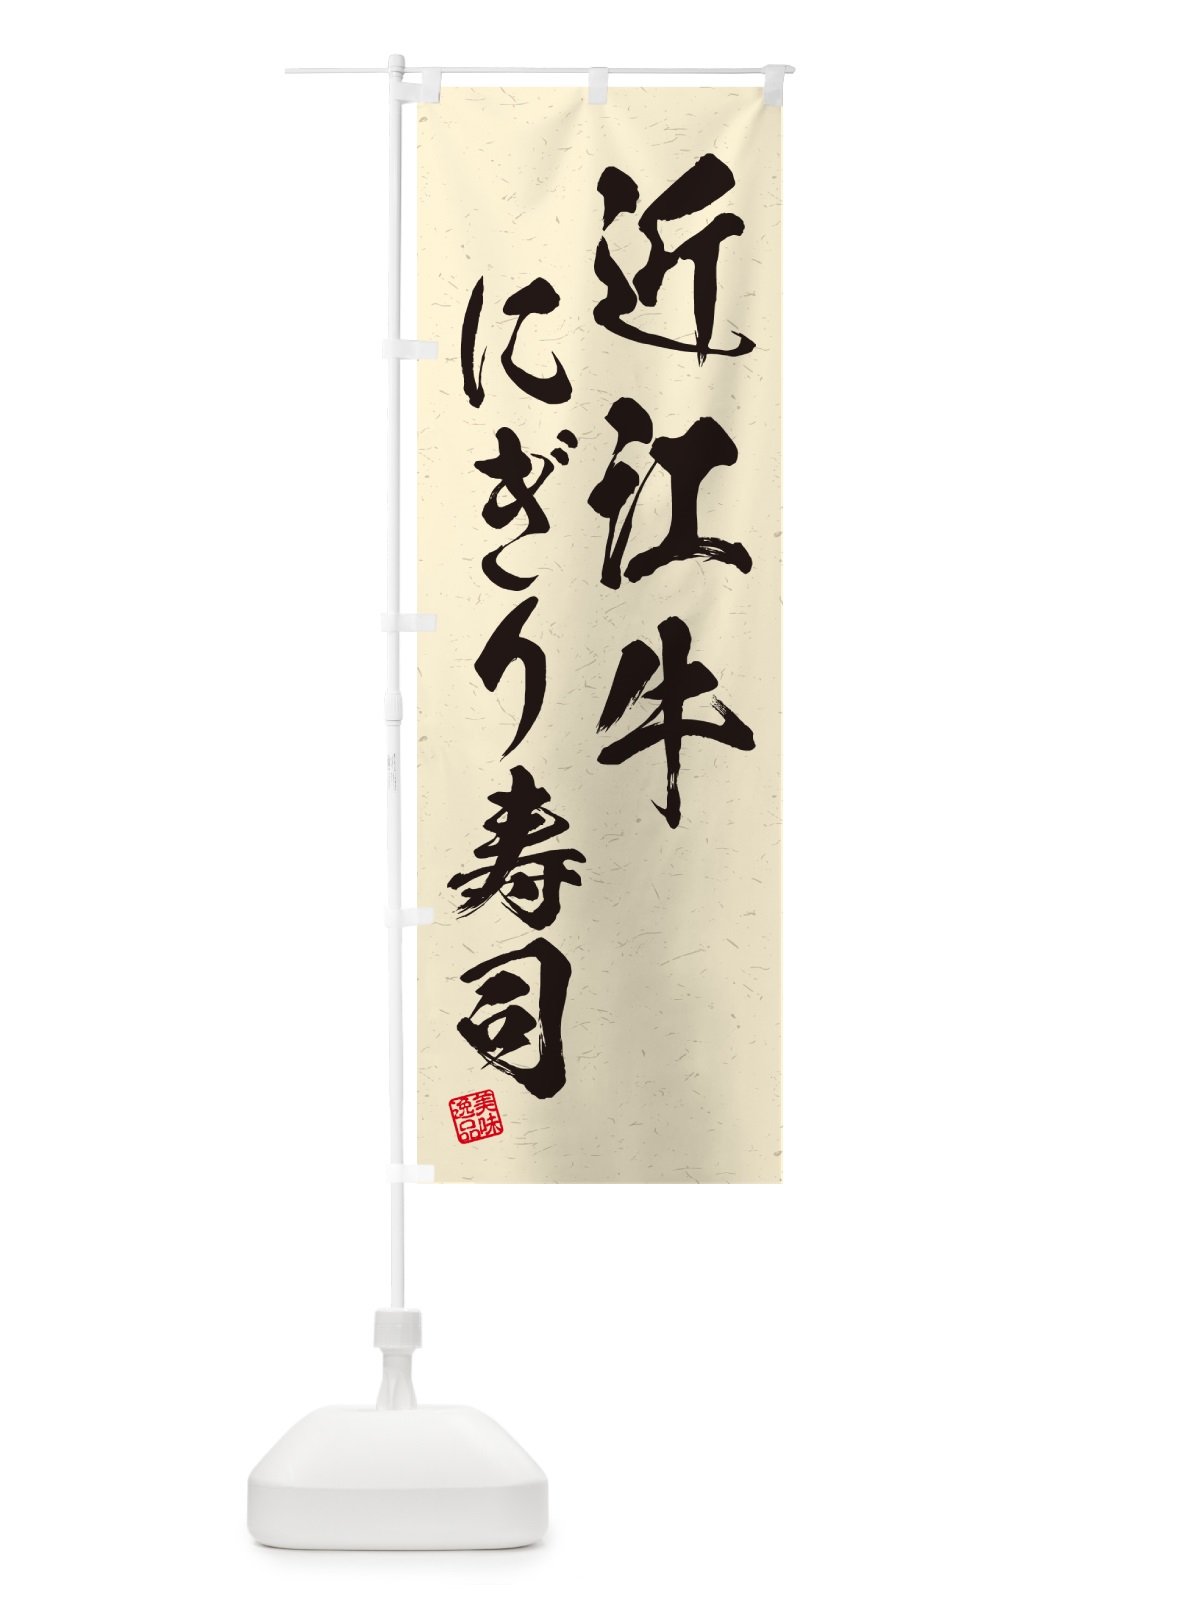 近江牛
にぎり寿司
美味
逸品